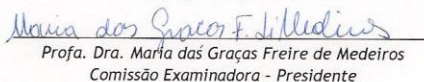 Maria das Graças F. de Medeiros
Profa. Dra. Maria das Graças Freire de Medeiros
Comissão Examinadora - Presidente